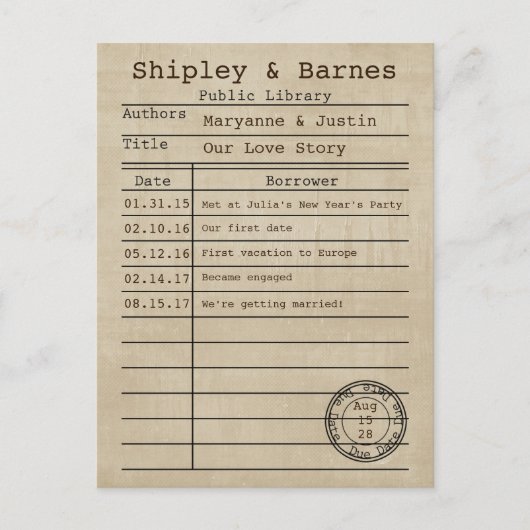 Shipley & Barnes
Public Library
Authors Maryanne & Justin
Title Our Love Story
Date Borrower
01.31.15 Met at Julia's New Year's Party
02.10.16 Our first date
05.12.16 First vacation to Europe
02.14.17 Became engaged
08.15.17 We're getting married!
Due Date Due Date Due Date Due Date
Aug
15
28